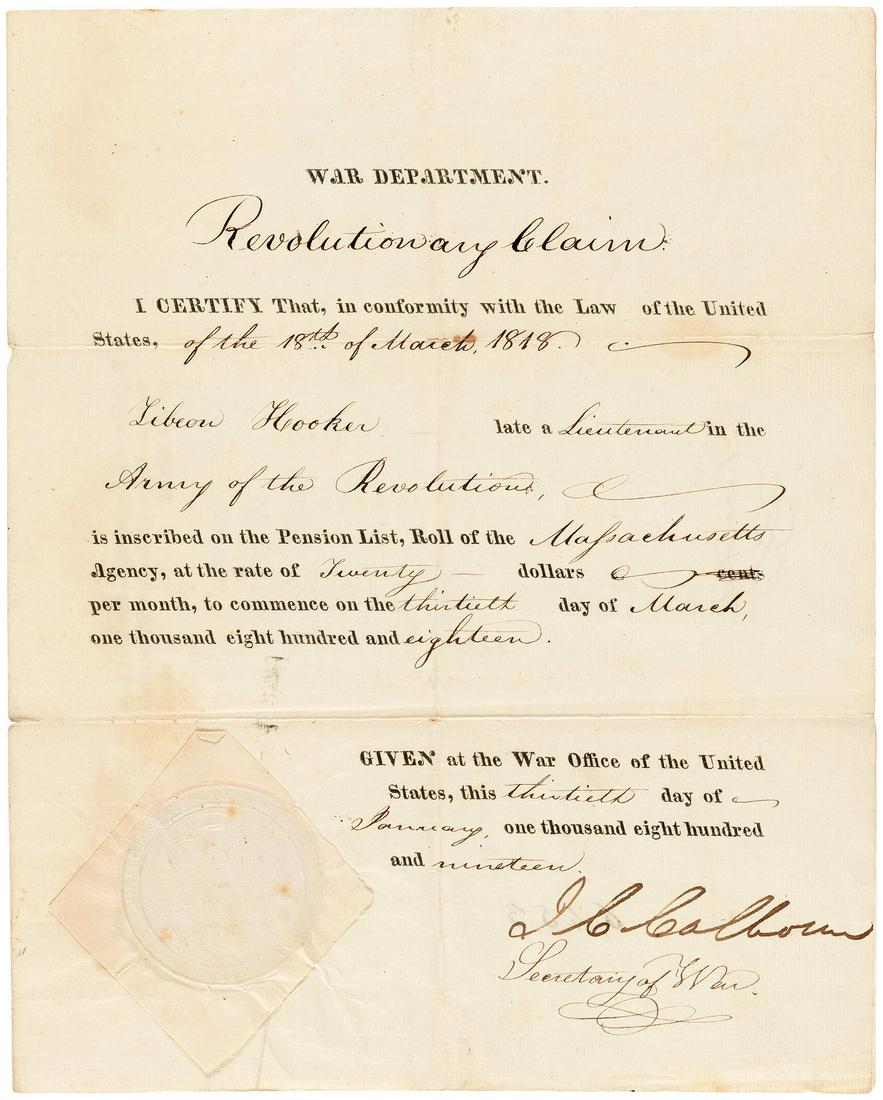 WAR DEPARTMENT.
Revolutionary Claim.
I CERTIFY That, in conformity with the Law of the United
States, of the 18th of March, 1818.
Zibeon Hooker late a Lieutenant in the
Army of the Revolution,
is inscribed on the Pension List, Roll of the Massachusetts
Agency, at the rate of Twenty dollars cents
per month, to commence on the thirtieth day of March,
one thousand eight hundred and eighteen.
GIVEN at the War Office of the United
States, this thirtieth day of
January, one thousand eight hundred
and nineteen.
J C Calhoun
Secretary of War.